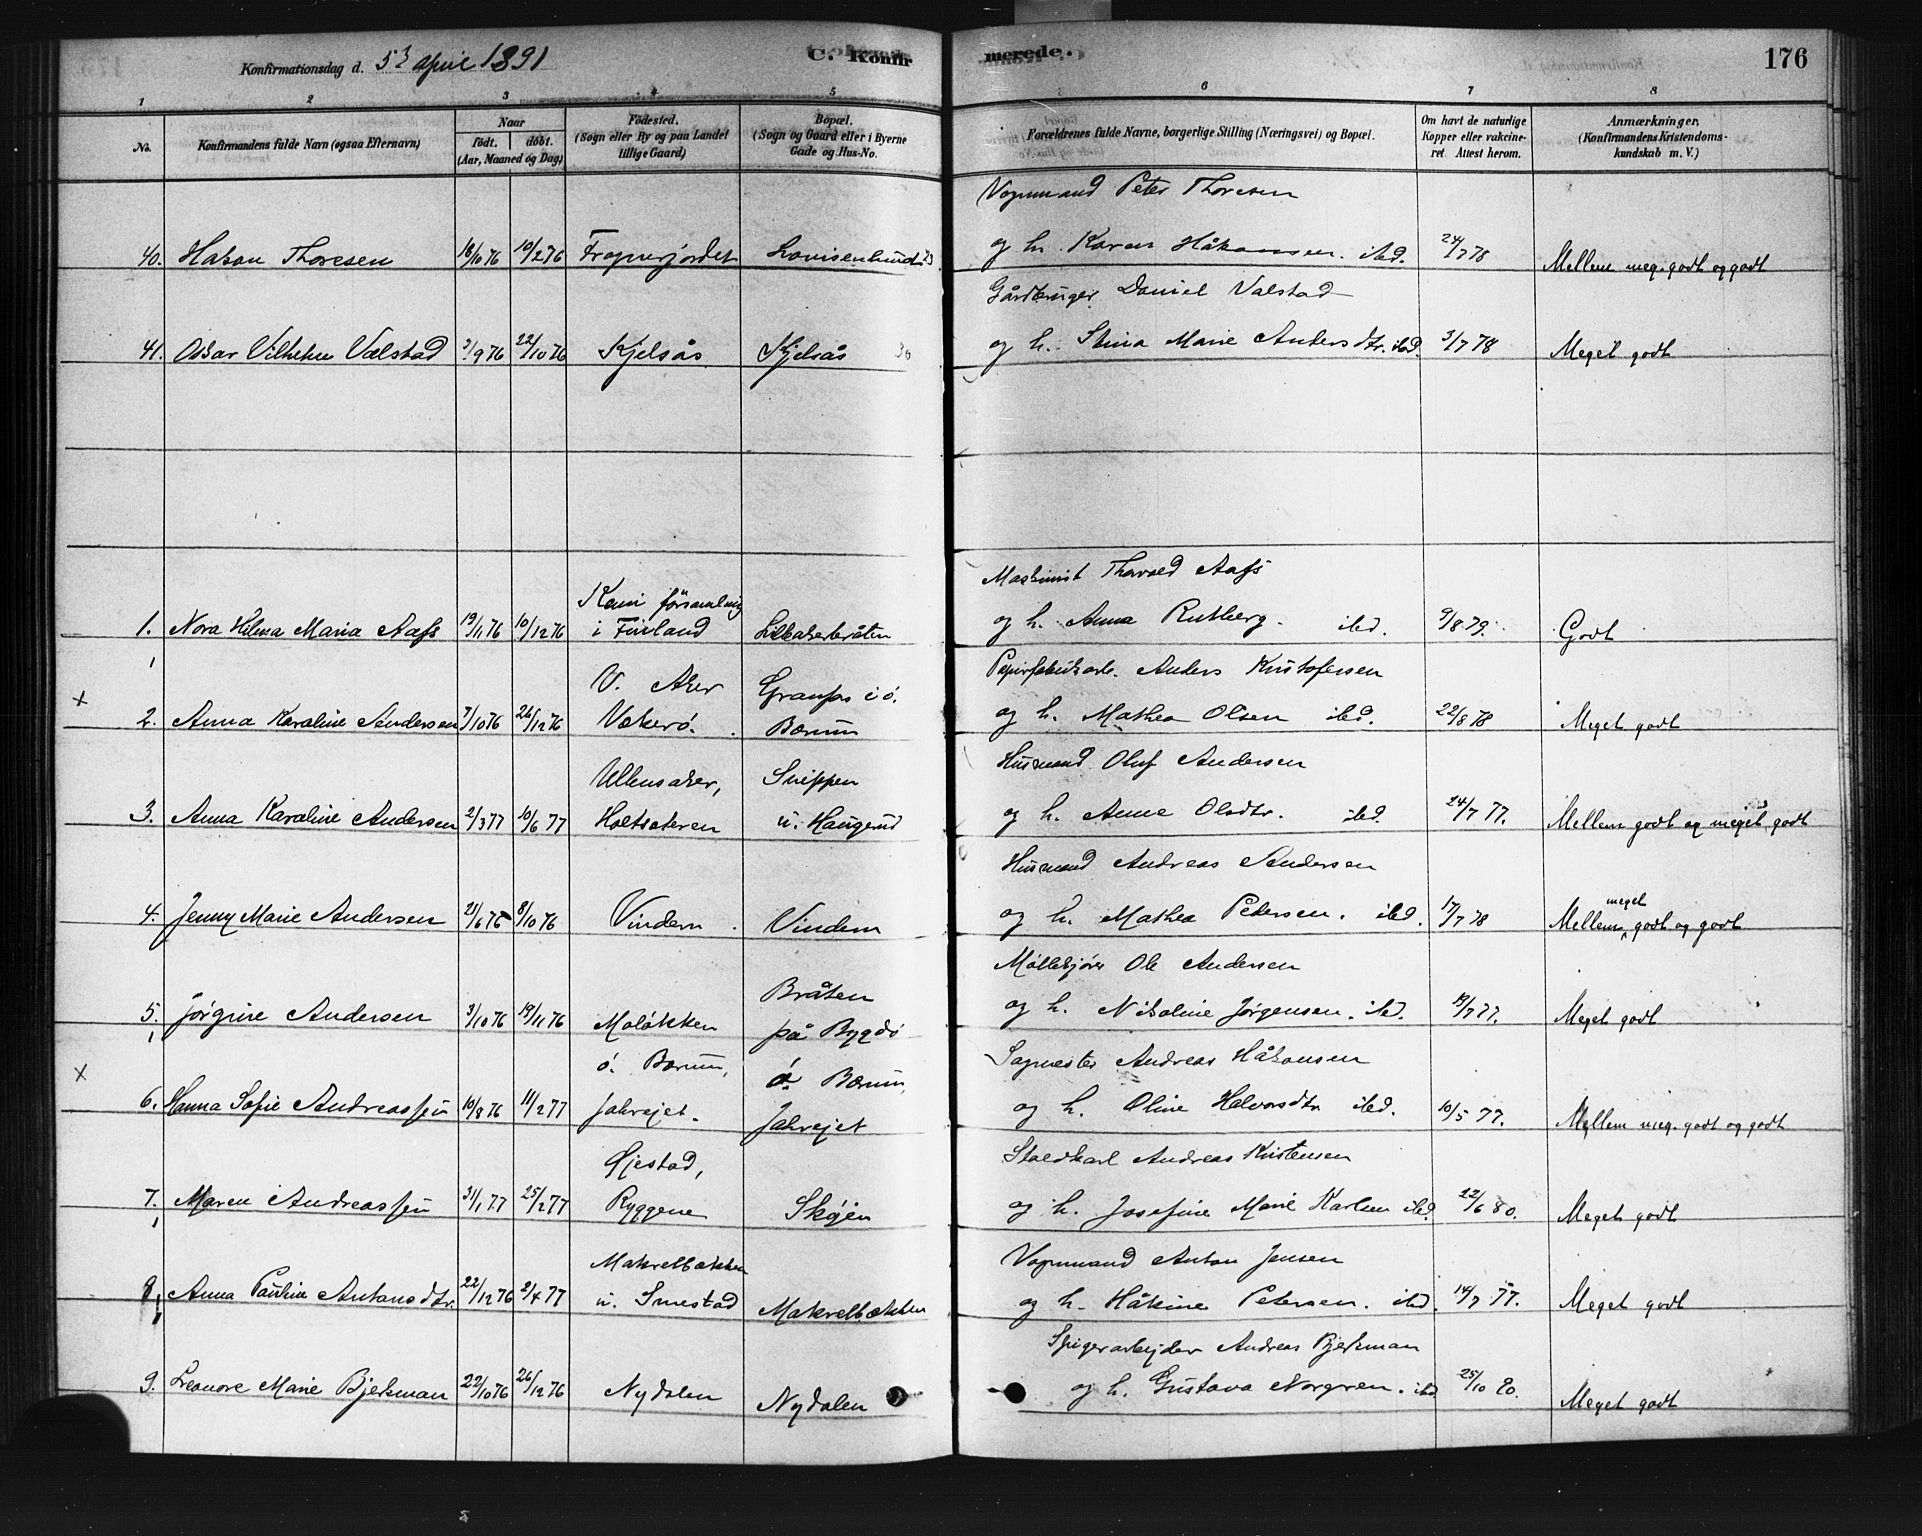 Konfirmationsdag d. 5t april 1891
C. Konfirmerede.
176
1 2 3 4 5 6 7 8
No.
Konfirmandens fulde Navn (ogsaa Efternavn)
Naar
født. døbt.
(Aar, Maaned og Dag)
Fødested.
(Sogn eller By og paa Landet
tillige Gaard)
Bopæl.
(Sogn og Gaard eller i Byerne
Gade og Hus-No.
Forældrenes fulde Navne, borgerlige Stilling (Næringsvei) og Bopæl.
Om havt de naturlige
Kopper eller vakcine-
ret. Attest herom.
Anmærkninger,
(Konfirmandens Kristendoms-
kundskab m. V.)
Vognmand Peter Thoresen
40. Håkon Thoresen 18/10 76 10/2 76 Frognerjordet Lovisenlund og h. Karen Håkansen. ibd. 24/7 78 Mellem meg. godt og godt
Gårdbruger Daniel Valstad
41. Oskar Vilhelm Valstad 3/9 76 22/10 76 Kjelsås Kjelsås 30 og h. Stina Marie Andersdtr. ibd. 3/7 78 Meget godt
Maskinist Thorvald Aafs
Kemi församling
1. Nora Hilma Maria Aafs 19/11 76 10/12 76 i Finland Lilleakerbråten og h. Anna Rutberg. ibd. 9/8 79. Godt
Papirfabrikarb. Anders Kristofersen
V. Aker Granfos i ö.
2. Anna Karoline Andersen 7/10 76 26/12 76 Vækerö. Bærum og h. Mathea Olsen ibd. 22/8 78 Meget godt
Husmand Oluf Andersen
Ullensaker, Snippen
3. Anna Karoline Andersen 2/3 77 10/6 77 Holtsateren u. Haugerud og h. Anne Olsdtr. ibd. 24/7 77. Mellem godt og meget godt
Husmand Andreas Andersen
4. Jenny Marie Andersen 21/6 76 8/10 76 Vindern Vindern og h. Mathea Pedersen. ibd. 17/7 78 Mellem meget godt og godt
Møllekjører Ole Andersen
Bråten
5. Jørgine Andersen 3/10 76 19/11 76 Moløkken på Bygdø og h. Nikoline Jørgensen. ibd. 19/7 77. Meget godt
Sagmester Andreas Håkonsen
ö. Bærum, ö. Bærum,
6. Hanna Sofie Andreassen 10/8 76 11/2 77 Jahrejet. Jahrejet og h. Oline Halvorsdtr ibd. 10/5 77. Mellem meg. godt og godt
Staldkarl Andreas Kristensen
Øjestad,
7. Maren Andreassen 31/1 77 25/2 77 Ryggene Skøjen og h. Josefine Marie Karlsen ibd. 22/6 80. Meget godt
Vognmand Anton Jensen
Makrelbækken
8. Anna Pauline Antonsdtr. 22/12 76 2/4 77 u. Smestad Makrelbækken og h. Håkine Petersen. ibd. 14/7 77. Meget godt
Spigerarbejder Andreas Bjerkman
9. Leonore Marie Bjerkman 22/10 76 26/12 76 Nydalen Nydalen og h. Gustava Norgren. ibd. 25/10 80. Meget godt